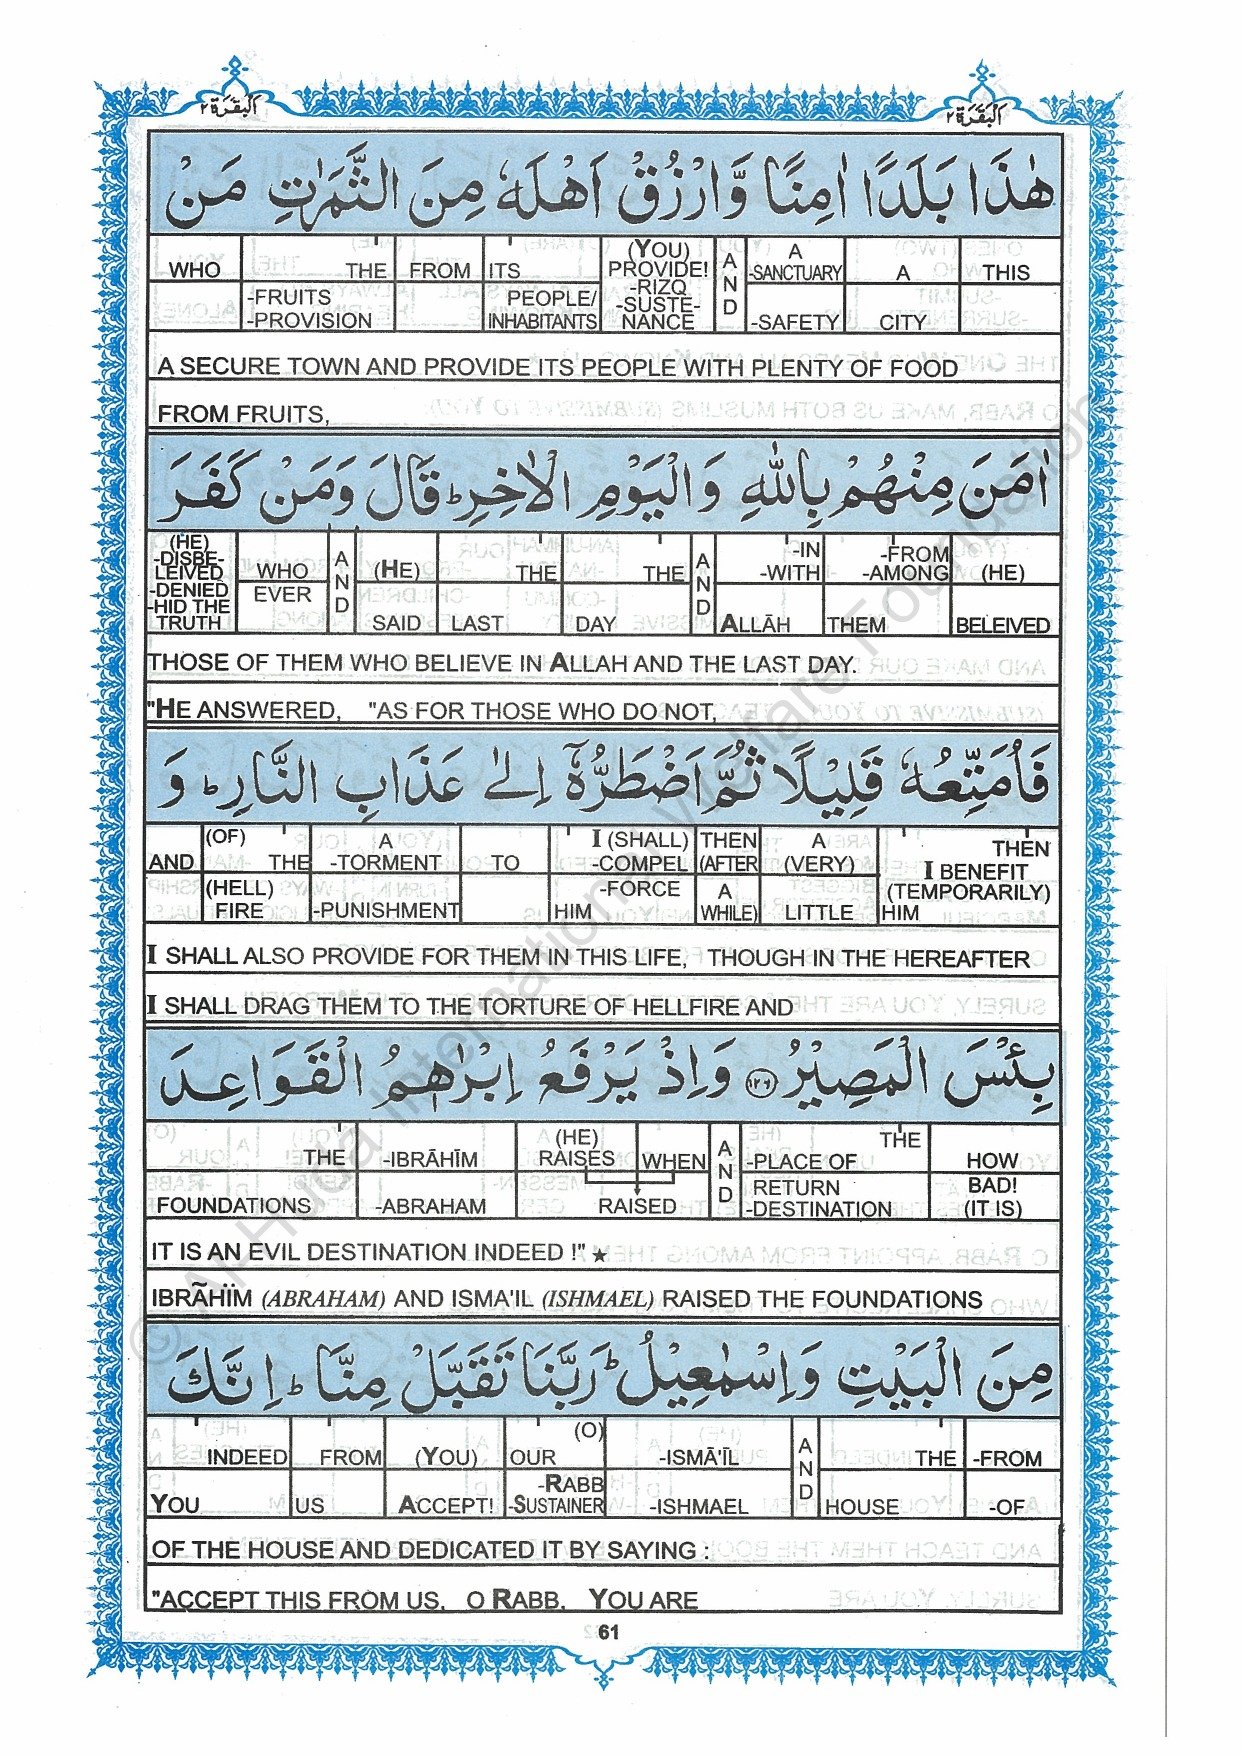 اَلْبَقَرَة ٢
اَلْبَقَرَة ٢
هٰذَا بَلَدًا اٰمِنًا وَّارْزُقْ اَهْلَهٗ مِنَ الثَّمَرٰتِ مَنْ
WHO THE FROM ITS (YOU) PROVIDE! AND A -SANCTUARY A THIS
-FRUITS -PROVISION PEOPLE/ INHABITANTS -RIZQ -SUSTE- NANCE -SAFETY CITY
A SECURE TOWN AND PROVIDE ITS PEOPLE WITH PLENTY OF FOOD
FROM FRUITS,
اٰمَنَ مِنْهُمْ بِاللّٰهِ وَالْيَوْمِ الْاٰخِرِ ؕ قَالَ وَمَنْ كَفَرَ
(HE) -DISBE- LEIVED WHO AND (HE) THE THE AND -IN -WITH -FROM -AMONG (HE)
-DENIED -HID THE TRUTH EVER SAID LAST DAY ALLĀH THEM BELEIVED
THOSE OF THEM WHO BELIEVE IN ALLAH AND THE LAST DAY.
"HE ANSWERED, "AS FOR THOSE WHO DO NOT,
فَاُمَتِّعُهٗ قَلِيْلًا ثُمَّ اَضْطَرُّهٗۤ اِلٰى عَذَابِ النَّارِ ؕ وَ
AND (OF) THE A -TORMENT TO I (SHALL) -COMPEL THEN (AFTER A (VERY) THEN I BENEFIT
(HELL) FIRE -PUNISHMENT -FORCE HIM A WHILE) LITTLE (TEMPORARILY) HIM
I SHALL ALSO PROVIDE FOR THEM IN THIS LIFE, THOUGH IN THE HEREAFTER
I SHALL DRAG THEM TO THE TORTURE OF HELLFIRE AND
بِئْسَ الْمَصِيْرُ ١٢٦ وَاِذْ يَرْفَعُ اِبْرٰهٖمُ الْقَوَاعِدَ
THE -IBRĀHĪM (HE) RAISES WHEN AND THE -PLACE OF HOW
FOUNDATIONS -ABRAHAM RAISED RETURN -DESTINATION BAD! (IT IS)
IT IS AN EVIL DESTINATION INDEED !" ★
IBRÃHÏM (ABRAHAM) AND ISMA'IL (ISHMAEL) RAISED THE FOUNDATIONS
مِنَ الْبَيْتِ وَاِسْمٰعِيْلُ ؕ رَبَّنَا تَقَبَّلْ مِنَّا ؕ اِنَّكَ
INDEED FROM (YOU) OUR (O) -ISMĀ'ĪL AND THE -FROM
YOU US ACCEPT! -RABB -SUSTAINER -ISHMAEL HOUSE -OF
OF THE HOUSE AND DEDICATED IT BY SAYING :
"ACCEPT THIS FROM US, O RABB, YOU ARE
61
© Al-Huda International Welfare Foundation